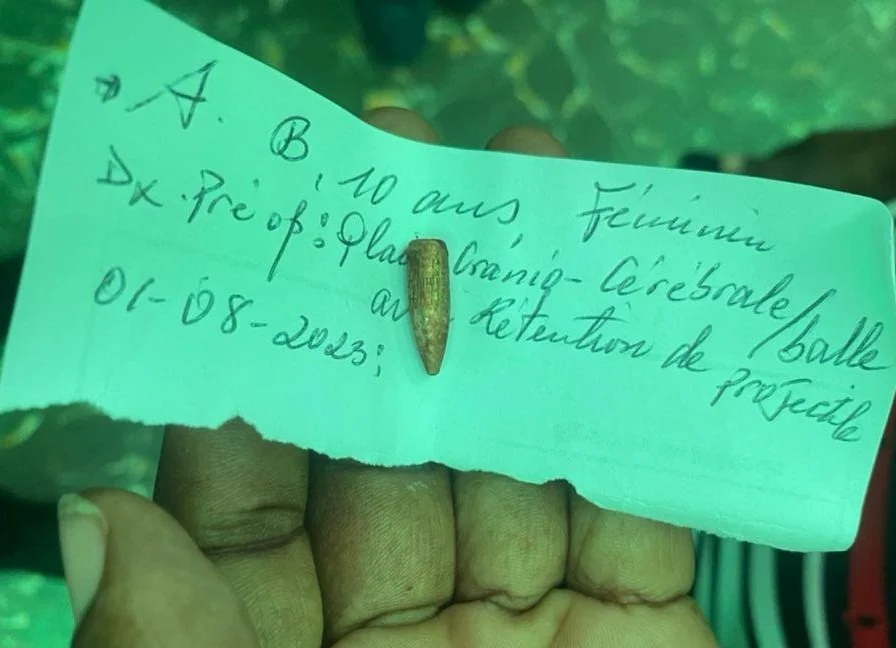 A. B, 10 ans Féminin
Dx. Pré op: Cranio-Cérébrale/balle
Rétention de projectile
01-08-2023;